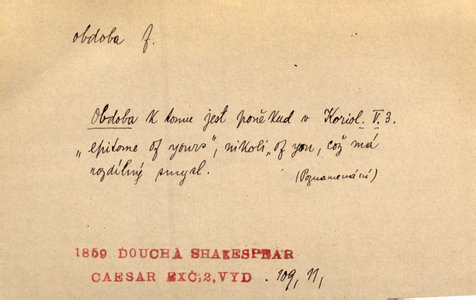 obdoba f.
Obdoba k tomu jest poněkud v Koriol. V. 3.
„epitome of yours", nikoli „of you, což má
rozdílný smysl.
(Poznamenání)
1859 DOUCHA SHAKESPEAR
CAESAR EXC,2,VYD . 109, 11,